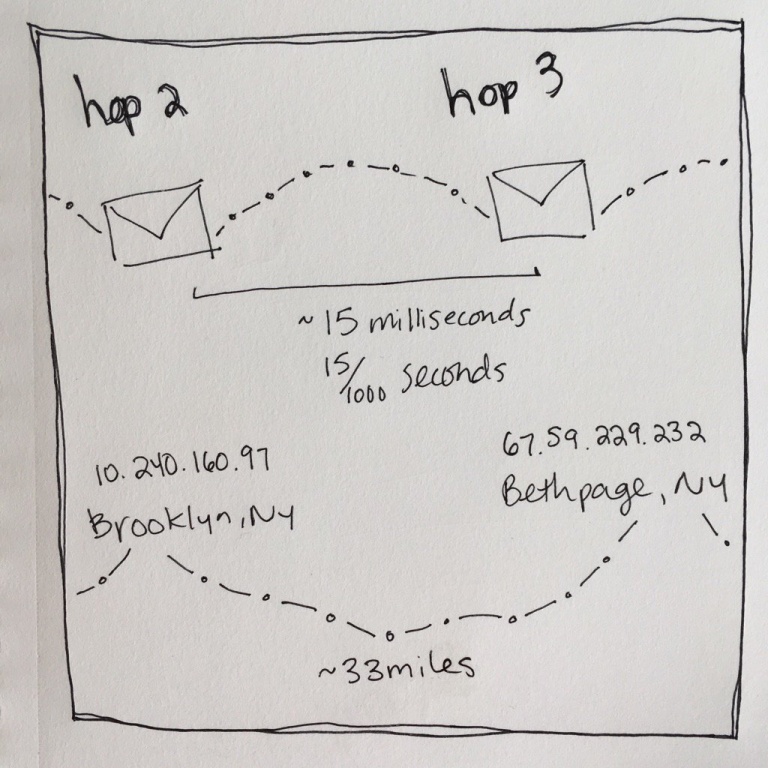 hop 2
hop 3
~15 milliseconds
15/1000 seconds
10.240.160.97
Brooklyn, NY
67.59.229.232
Bethpage, NY
~33miles